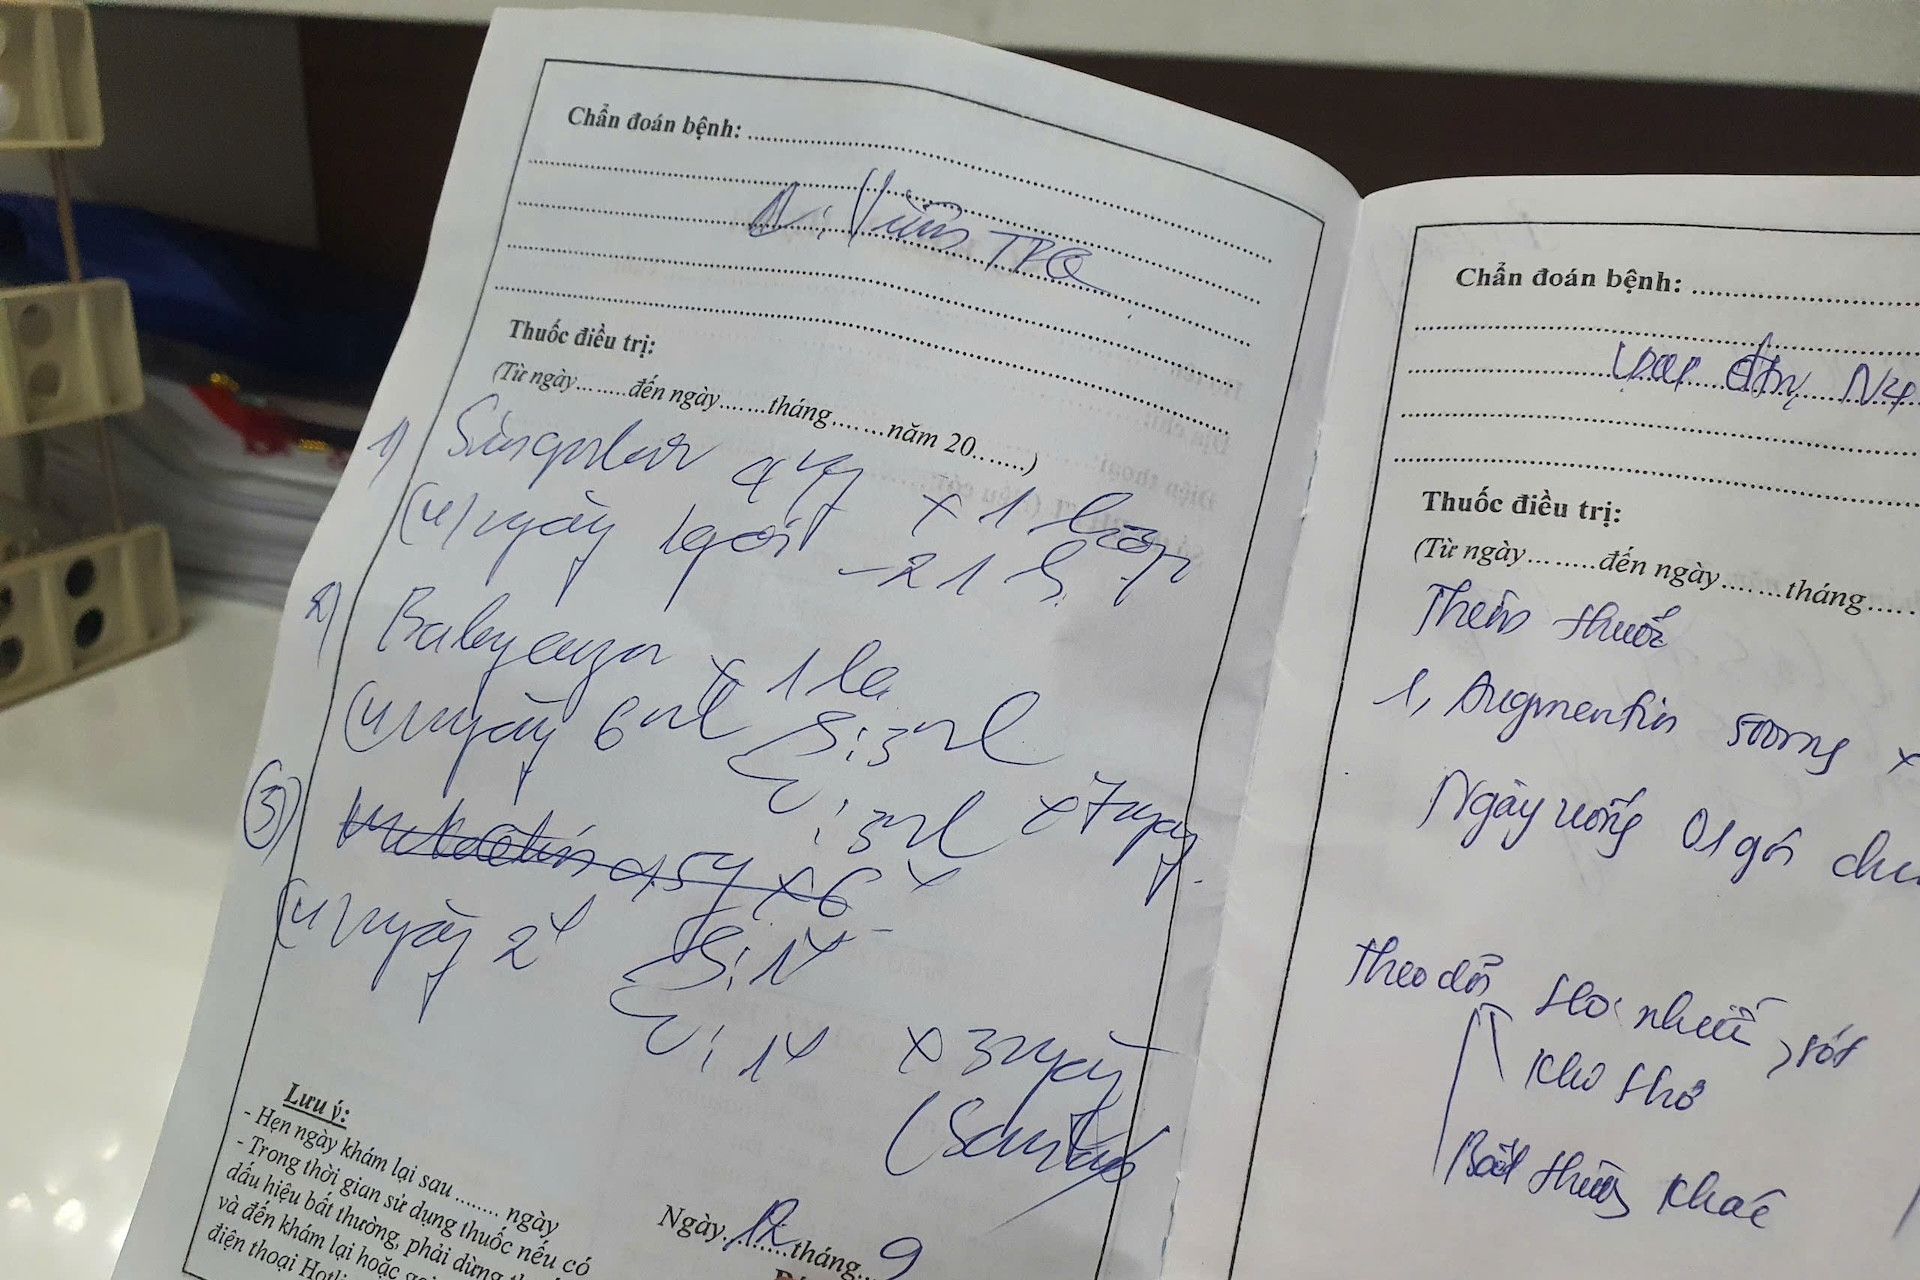 Chẩn đoán bệnh:
D: Viêm TPQ
Thuốc điều trị:
(Từ ngày........đến ngày.......tháng........năm 20.......)
1) Singulair 4mg x 1 hộp
(u) ngày 1gói - 21h
2) x 1 lọ
(u) ngày 6ml S: 3ml
C: 3ml x 7 ngày
3)
(u) ngày 2v S: 1v
C: 1v x 3 ngày
(Sau
Lưu ý:
- Hẹn ngày khám lại sau ........ ngày
- Trong thời gian sử dụng thuốc nếu có
dấu hiệu bất thường, phải dừng
và đến khám lại hoặc gọi
điện thoại
Ngày 12 tháng 9
Chẩn đoán bệnh:
Thuốc điều trị:
(Từ ngày........đến ngày.......tháng
Thêm thuốc
1, Augmentin 500mg x
Ngày uống 01 gói
Theo dõi Ho nhiều, sốt
Khó thở
Bất thường khác